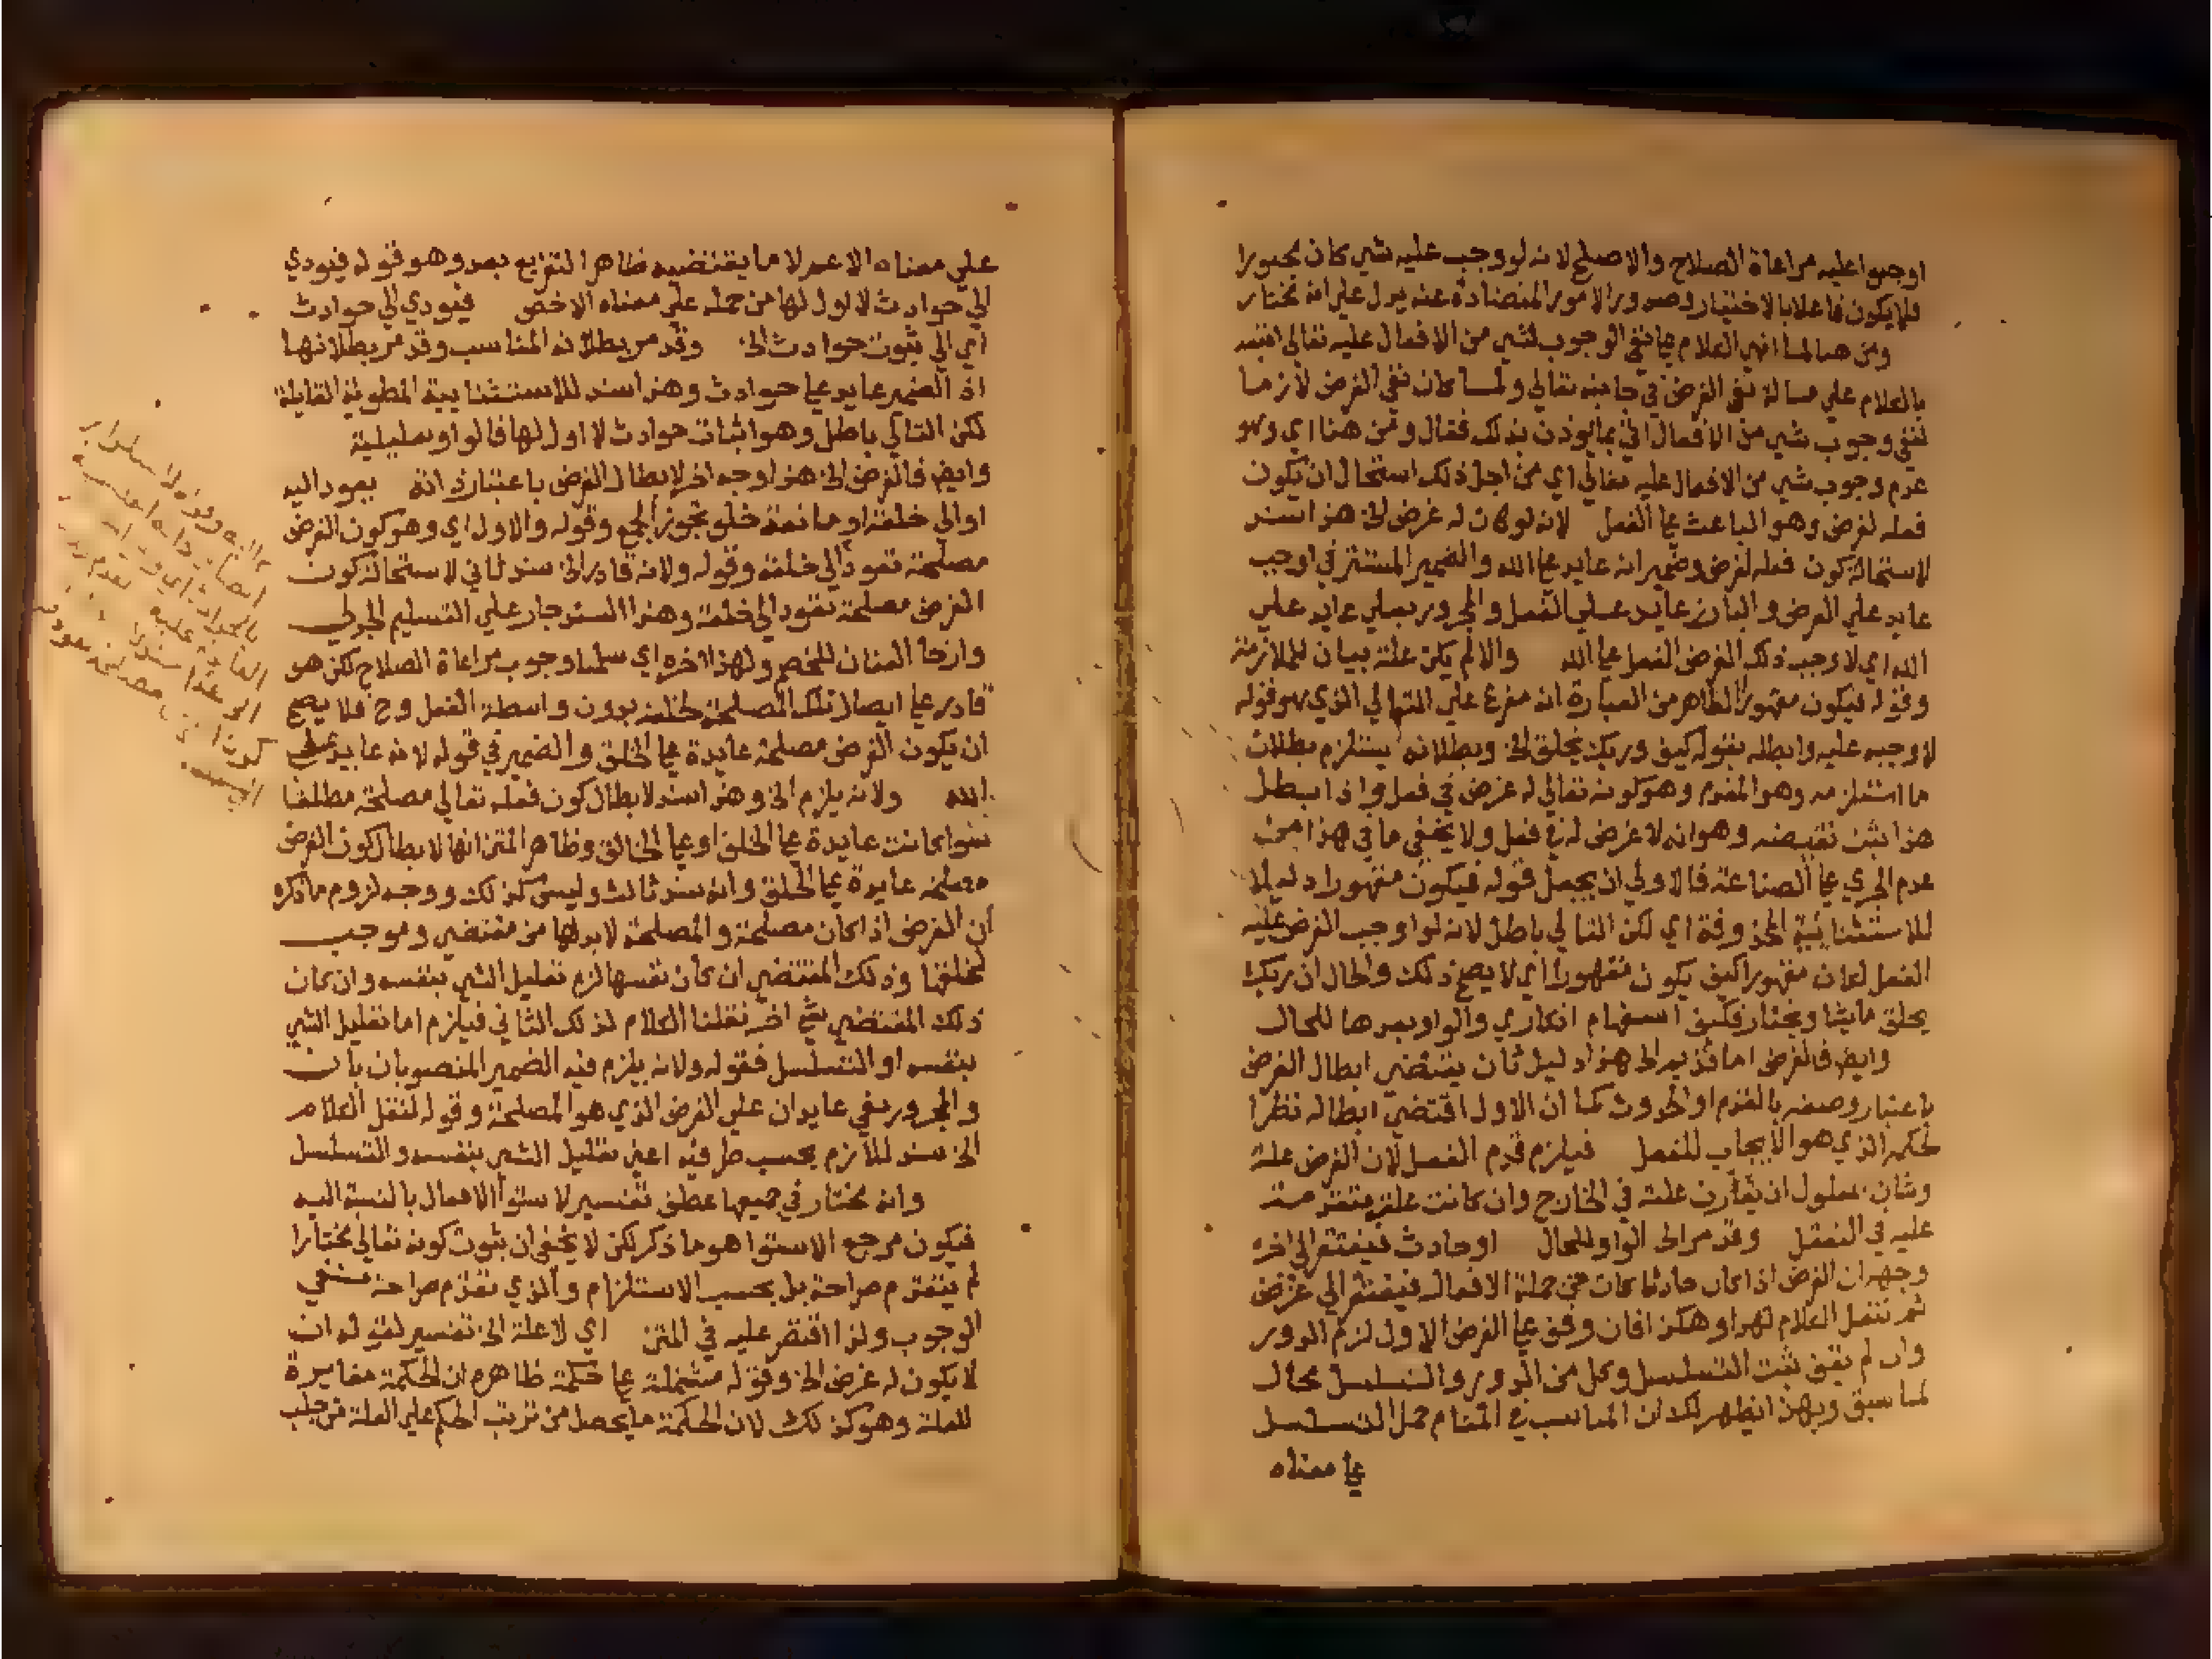 اوجبوا عليه مراعاة الصلاح والاصلح لانه لو وجب عليه شي كان مجبورا
فلا يكون فاعلا بالاختيار وصدور الامور المتضادة عنه يدل علي انه مختار
ومن هنا لما انهي الكلام علي نفي الوجوب لشي من الافعال عليه تعالي اتبعه
بالكلام علي مسالة نفي الغرض في جانبه تعالي ولما كان نفي الغرض لازما
لنفي وجوب شي من الافعال اتي بما يوذن بذلك فقال ومن هنا اي وهو
عدم وجوب شي من الافعال عليه تعالي اي من اجل ذلك استحال ان يكون
فعله لغرض وهو الباعث علي الفعل لانه لو كان له غرض الخ هذا سند
لاستحالة كون فعله لغرض وضمير انه عايد علي الله والضمير المستتر في اوجب
عايد علي الغرض والبارز عايد علي الفعل والمجرور بعلي عايد علي
الله اي لاوجب ذلك الغرض الفعل علي الله والا لم يكن علة بيان للملازمة
وقوله فيكون مقهورا الظاهر من العبارة انه مفرع علي التالي الذي هو قوله
لاوجبه عليه وابطله بقوله كيف وربك يخلق الخ وبطلانه يستلزم بطلان
ما استلزمه وهو المقدم وهو كونه تعالي له غرض في فعل واذا بطل
هذا ثبت نقيضه وهو انه لا غرض له في فعل ولا يخفي ما في هذا من
عدم الجري علي الصناعة فالاولي ان يجعل قوله فيكون مقهورا دليلا
للاستثنائية المحذوفة اي لكن التالي باطل لانه لو اوجب الغرض عليه
الفعل لكان مقهورا كيف يكون مقهورا اي لا يصح ذلك والحال ان ربك
يخلق ما يشا ويختار فكيف استفهام انكاري والواو بعدها للحال
وايض فالغرض اما قديم الخ هذا دليل ثان يقتضي ابطال الغرض
باعتبار وصفه بالقدم او الحدوث كما ان الاول اقتضي ابطاله نظرا
لحكمه الذي هو الايجاب للفعل فيلزم قدم الفعل لان الغرض علة
وشان معلول ان يقارن علته في الخارج وان كانت علته متقدمة
عليه في التعقل وقد مر الخ الواو للحال او حادث فيفتقر الي اخره
وجهه ان الغرض اذا كان حادثا كان من جملة الافعال فيفتقر الي غرض
ثم ننقل الكلام لهذا وهكذا فان وقف علي الغرض الاول لزم الدور
وان لم يقف ثبت التسلسل وكل من الدور والتسلسل محال
لما سبق وبهذا يظهر لك ان المناسب في المقام حمل التسلسل
علي معناه
علي معناه الاعم لا ما يقتضيه ظاهر التفريع بعد وهو قوله فيودي
الي حوادث لا اول لها من حمله علي معناه الاخص فيودي الي حوادث
اي الي ثبوت حوادث الخ وقد مر بطلانه المناسب وقد مر بطلانها
اذ الضمير عايد علي حوادث وهذا سند للاستثنايية المطوية القايلة
لكن التالي باطل وهو اثبات حوادث لا اول لها فالواو تعليلية
وايض فالغرض الخ هذا وجه اخر لابطال الغرض باعتبار انه يعود اليه
او الي خلقه او مانعة خلو تجوز الجمع وقوله والاول اي وهو كون الغرض
مصلحة تعود الي خلقه وقوله ولانه قادر الخ سند ثاني لاستحالة كون
الغرض مصلحة تعود الي خلقه وهذا السند جار علي التسليم الجدلي
وارخا العنان للخصم ولهذا اخره اي سلمنا وجوب مراعاة الصلاح لكن هو
قادر علي ايصال تلك المصلحة لخلقه بدون واسطة الفعل وح فلا يصح
ان يكون الغرض مصلحة عايدة علي الخلق والضمير في قوله لانه عايد علي
الله ولانه يلزم الخ وهذا سند لابطال كون فعله تعالي مصلحة مطلقا
سوا كانت عايدة علي الخلق او علي الخالق وظاهر المتن انها لابطال كون الغرض
مصلحة عايدة علي الخلق وانه سند ثالث وليس كذلك ووجه لزوم ما ذكر
ان الغرض اذا كان مصلحة والمصلحة لا بد لها من مقتضي وموجب
لخلقها وذلك المقتضي ان كان نفسها لزم تعليل الشي بنفسه وان كان
ذلك المقتضي شي اخر نقلنا الكلام لذلك الثاني فيلزم اما تعليل الشي
بنفسه او التسلسل فقوله ولانه يلزم فيه الضمير المنصوبان بان
والمجرور بفي عايدان علي الغرض الذي هو المصلحة وقوله لنقل الكلام
الخ سند للازم بحسب طرفيه اعني تعليل الشي بنفسه والتسلسل
وانه مختار في جميعها عطف تفسير لاستوا الافعال بالنسبة اليه
فيكون مرجع الاستوا هو ما ذكر لكن لا يخفي ان ثبوت كونه تعالي مختارا
لم يتقدم صراحة بل بحسب الاستلزام والذي تقدم صراحة نفي
الوجوب ولذا اقتصر عليه في المتن اي لا علة الخ تفسير لقوله ان
لا يكون له غرض الخ وقوله مشتملة علي حكمة ظاهره ان الحكمة مغايرة
للعلة وهو كذلك لان الحكمة ما يحصل من ترتب الحكم علي العلة من جلب